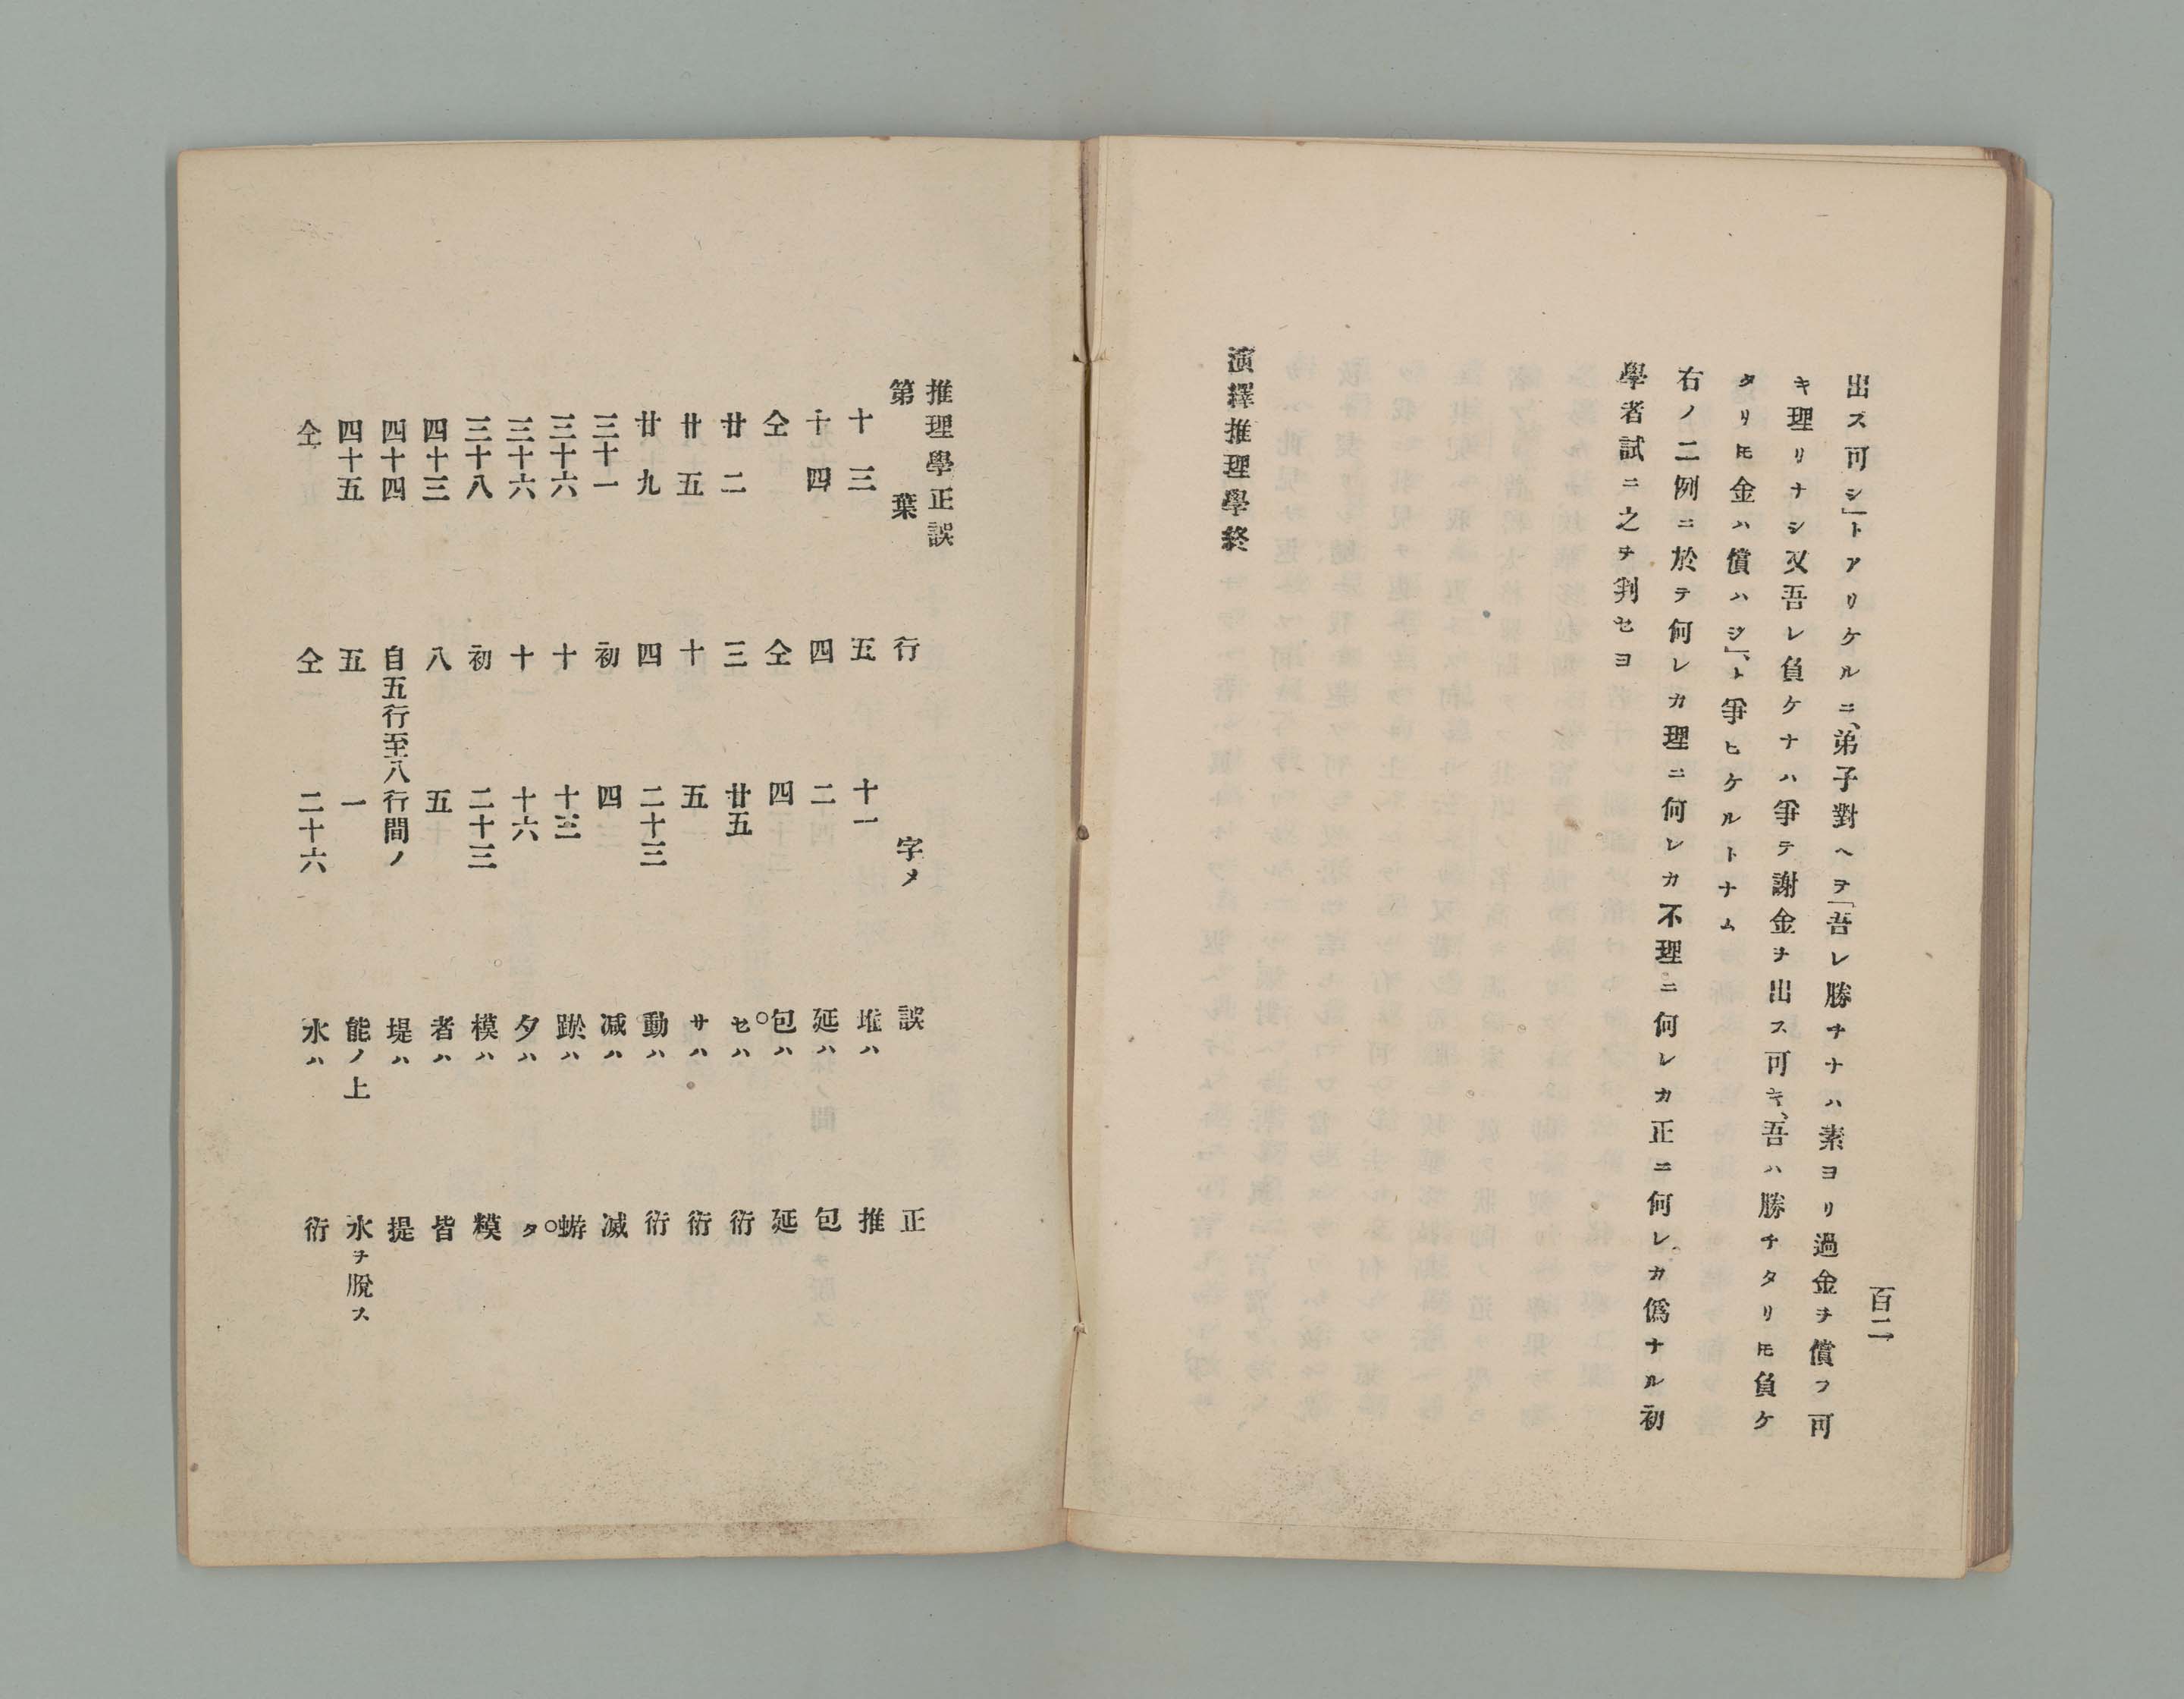 百二
出ス可シ」トアリケルニ、弟子對ヘヲ「吾レ勝チナハ素ヨリ過金ヲ償フ可
キ理リナシ又吾レ負ケナハ爭テ謝金ヲ出ス可キ、吾ハ勝チタリ𪜈負ケ
タリ𪜈金ハ償ハシ」、ト爭ヒケルトナム
右ノ二例ニ於テ何レカ理ニ何レカ不理ニ何レカ正ニ何レカ僞ナル初
學者試ニ之ヲ判セヨ
演擇推理學終
推理學正誤
第葉 行 字メ 誤 正
十三 五 十一 堆ハ 推
十四 四 二 延ハ 包
仝 仝 四 包ハ 延
廿二 三 廿五 セハ 衍
廿五 十 五 サハ 衍
廿九 四 二十三 動ハ 衍
三十一 初 四 减ハ 減
三十六 十 十三 ハ 蝣
三十六 十 十六 夕ハ タ
三十八 初 二十三 模ハ 糢
四十三 八 五 者ハ 皆
四十四 自五行至八行間ノ 堤ハ 提
四十五 五 一 能ノ上 氷ヲ脫ス
仝 仝 二十六 氷ハ 衍